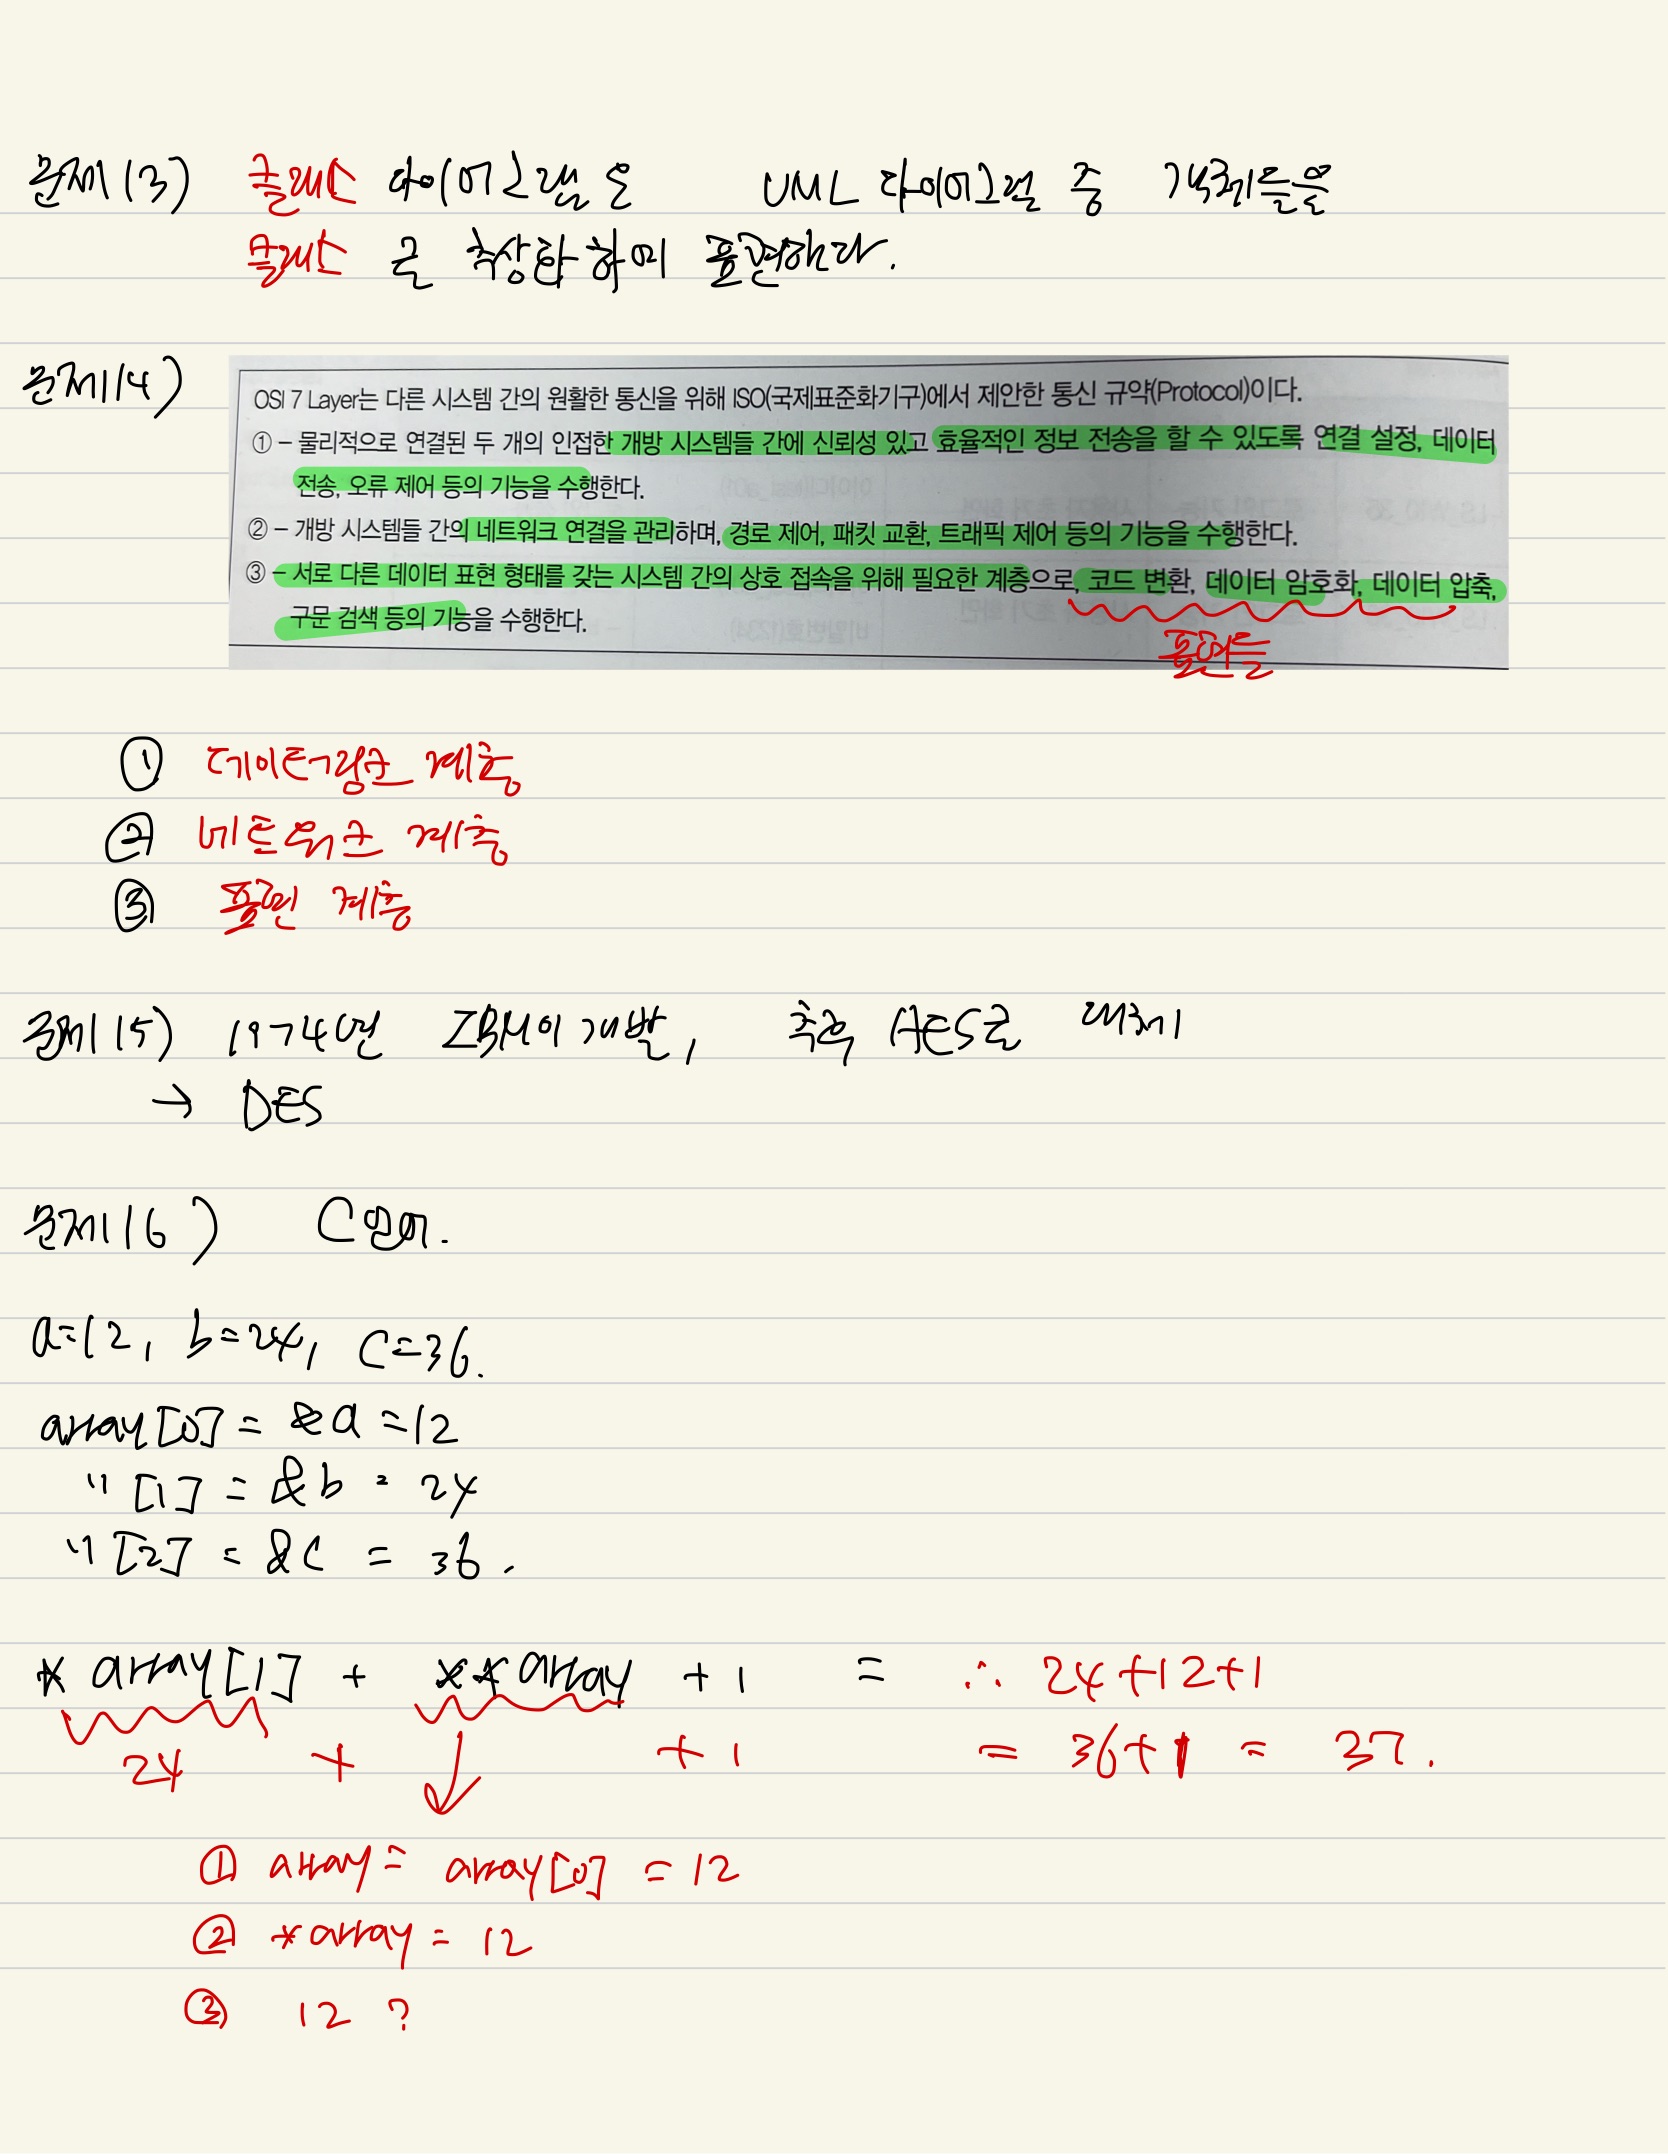 문제13) 클래스 다이어그램은 UML 다이어그램 중 객체들을
클래스로 추상화하여 표현한다.
문제14)
OSI 7 Layer는 다른 시스템 간의 원활한 통신을 위해 ISO(국제표준화기구)에서 제안한 통신 규약(Protocol)이다.
① – 물리적으로 연결된 두 개의 인접한 개방 시스템들 간에 신뢰성 있고 효율적인 정보 전송을 할 수 있도록 연결 설정, 데이터
전송, 오류 제어 등의 기능을 수행한다.
② – 개방 시스템들 간의 네트워크 연결을 관리하며, 경로 제어, 패킷 교환, 트래픽 제어 등의 기능을 수행한다.
③ – 서로 다른 데이터 표현 형태를 갖는 시스템 간의 상호 접속을 위해 필요한 계층으로, 코드 변환, 데이터 암호화, 데이터 압축,
구문 검색 등의 기능을 수행한다.
표현들
① 데이터링크 계층
② 네트워크 계층
③ 표현 계층
문제15) 1974년 IBM이 개발, 추후 AES로 대체
→ DES
문제16) C언어.
a=12, b=24, c=36.
array[0] = &a = 12
" [1] = &b = 24
" [2] = &c = 36.
* array[1] + **array + 1 = ∴ 24+12+1
24 + ↓ + 1 = 36+1 = 37.
① array = array[0] = 12
② *array = 12
③ 12 ?